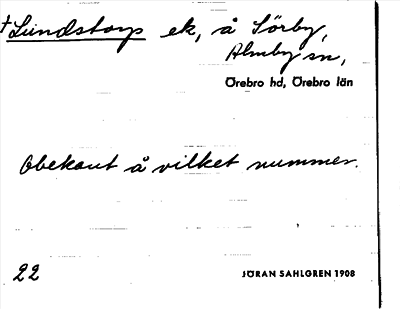 †Lundstorp ek, å Sörby,
Almby sn,
Örebro hd, Örebro län
Obekant å vilket nummer.
22 JÖRAN SAHLGREN 1908